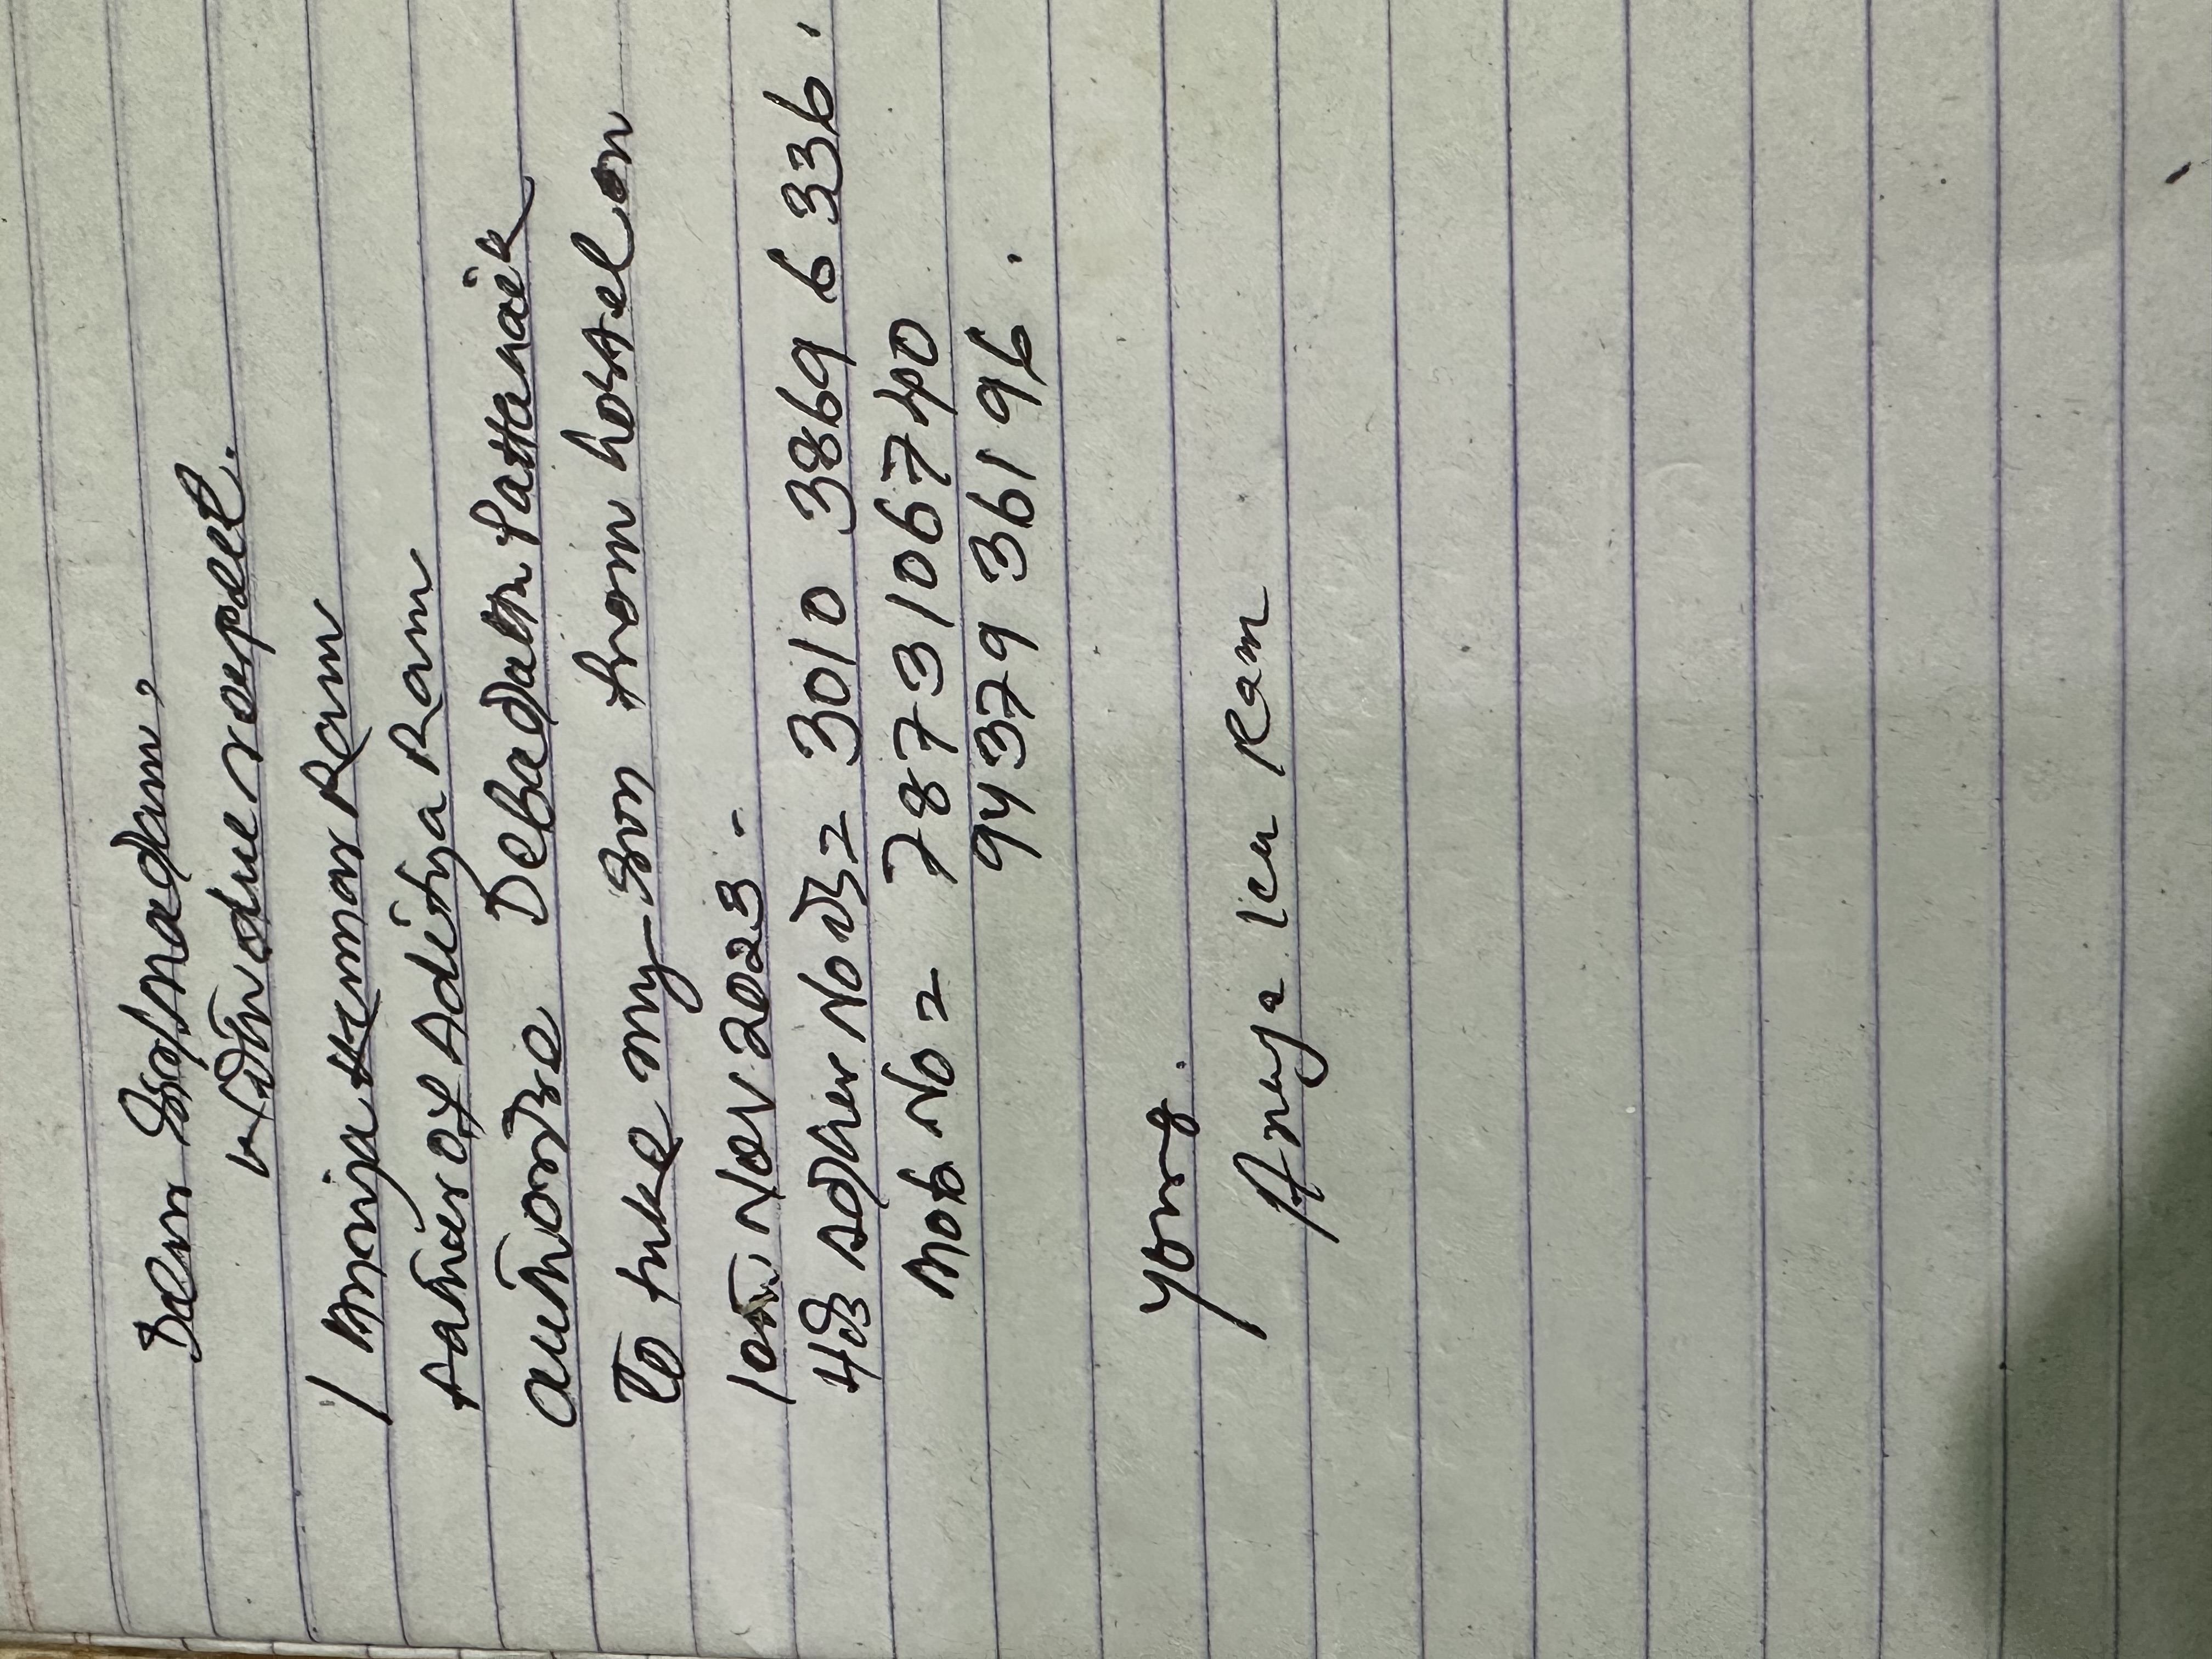 Dear Sir/Madam,
With due respect.
I Anuja Kumar Ram
father of Aditya Ram
authorize Debadatta Pattanaik
To take my son from hostel on
10th Nov 2023 -
His adher No is = 3010 3869 6336.
Mob No = 7873106740
9437936196.
Yours.
Anuja Ku Ram